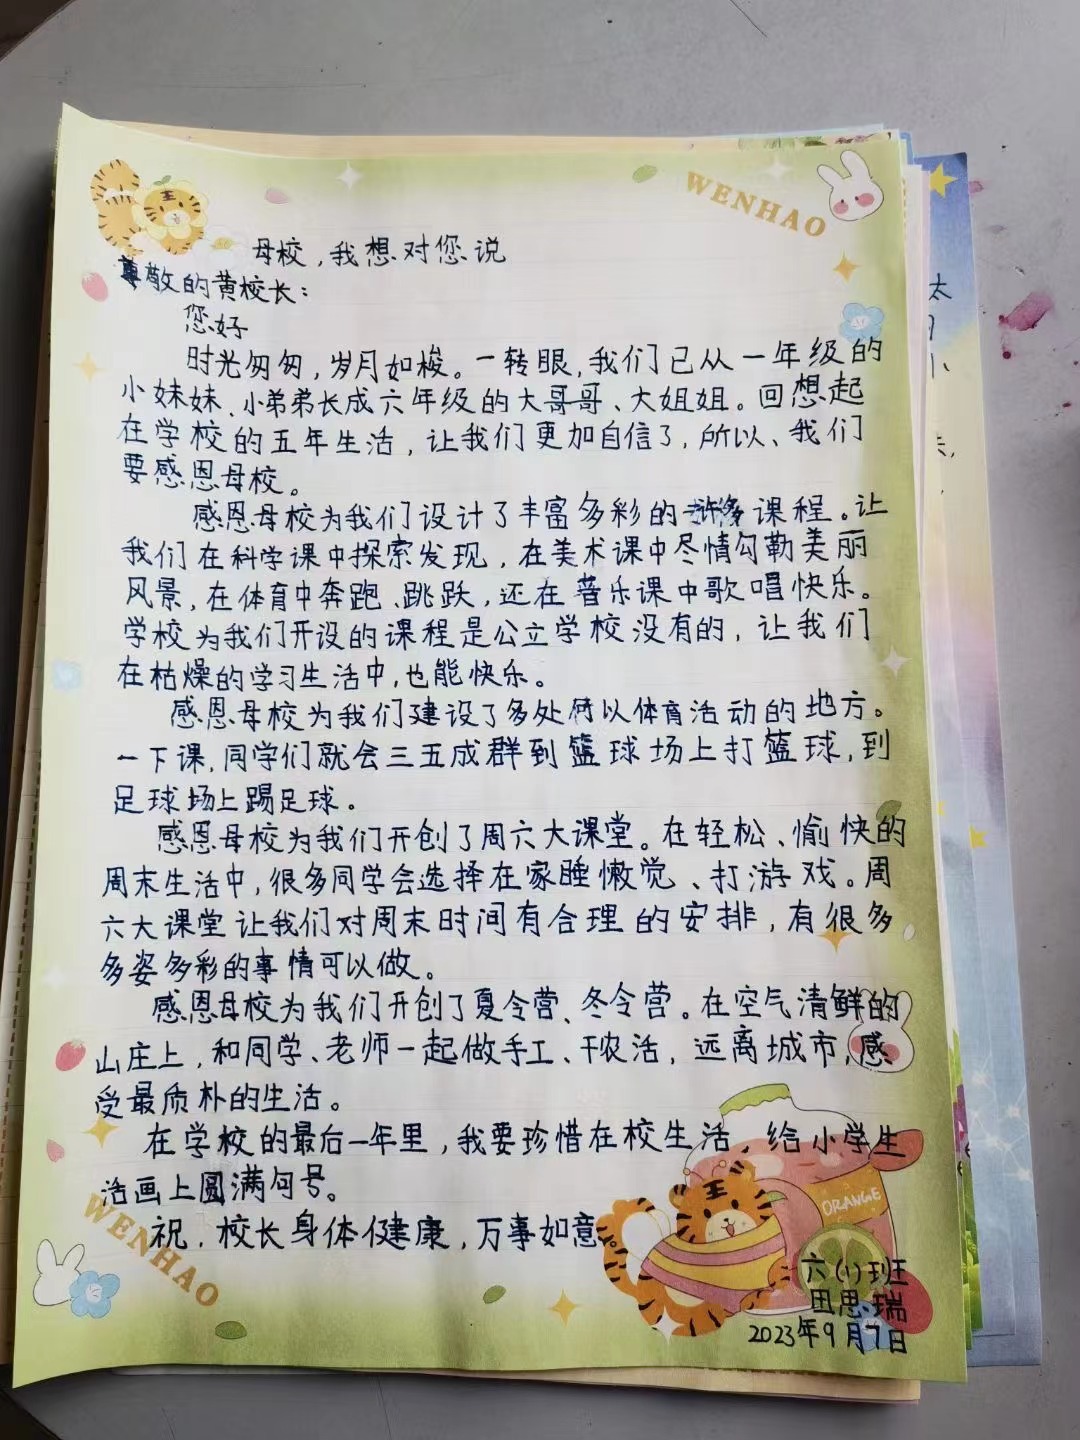 WENHAO
母校,我想对您说
尊敬的黄校长:
您好
时光匆匆,岁月如梭。一转眼,我们已从一年级的
小妹妹、小弟弟长成六年级的大哥哥、大姐姐。回想起
在学校的五年生活,让我们更加自信了,所以、我们
要感恩母校。
感恩母校为我们设计了丰富多彩的许多课程。让
我们在科学课中探索发现,在美术课中尽情勾勒美丽
风景,在体育中奔跑、跳跃,还在音乐课中歌唱快乐。
学校为我们开设的课程是公立学校没有的,让我们
在枯燥的学习生活中,也能快乐。
感恩母校为我们建设了多处可以体育活动的地方。
一下课,同学们就会三五成群到篮球场上打篮球,到
足球场上踢足球。
感恩母校为我们开创了周六大课堂。在轻松、愉快的
周末生活中,很多同学会选择在家睡懒觉、打游戏。周
六大课堂让我们对周末时间有合理的安排,有很多
多姿多彩的事情可以做。
感恩母校为我们开创了夏令营、冬令营。在空气清鲜的
山庄上,和同学、老师一起做手工、干农活,远离城市,感
受最质朴的生活。
在学校的最后一年里,我要珍惜在校生活,给小学生
活画上圆满句号。
祝,校长身体健康,万事如意。
ORANGE
WENHAO
六(1)班
田思瑞
2023年9月7日
太